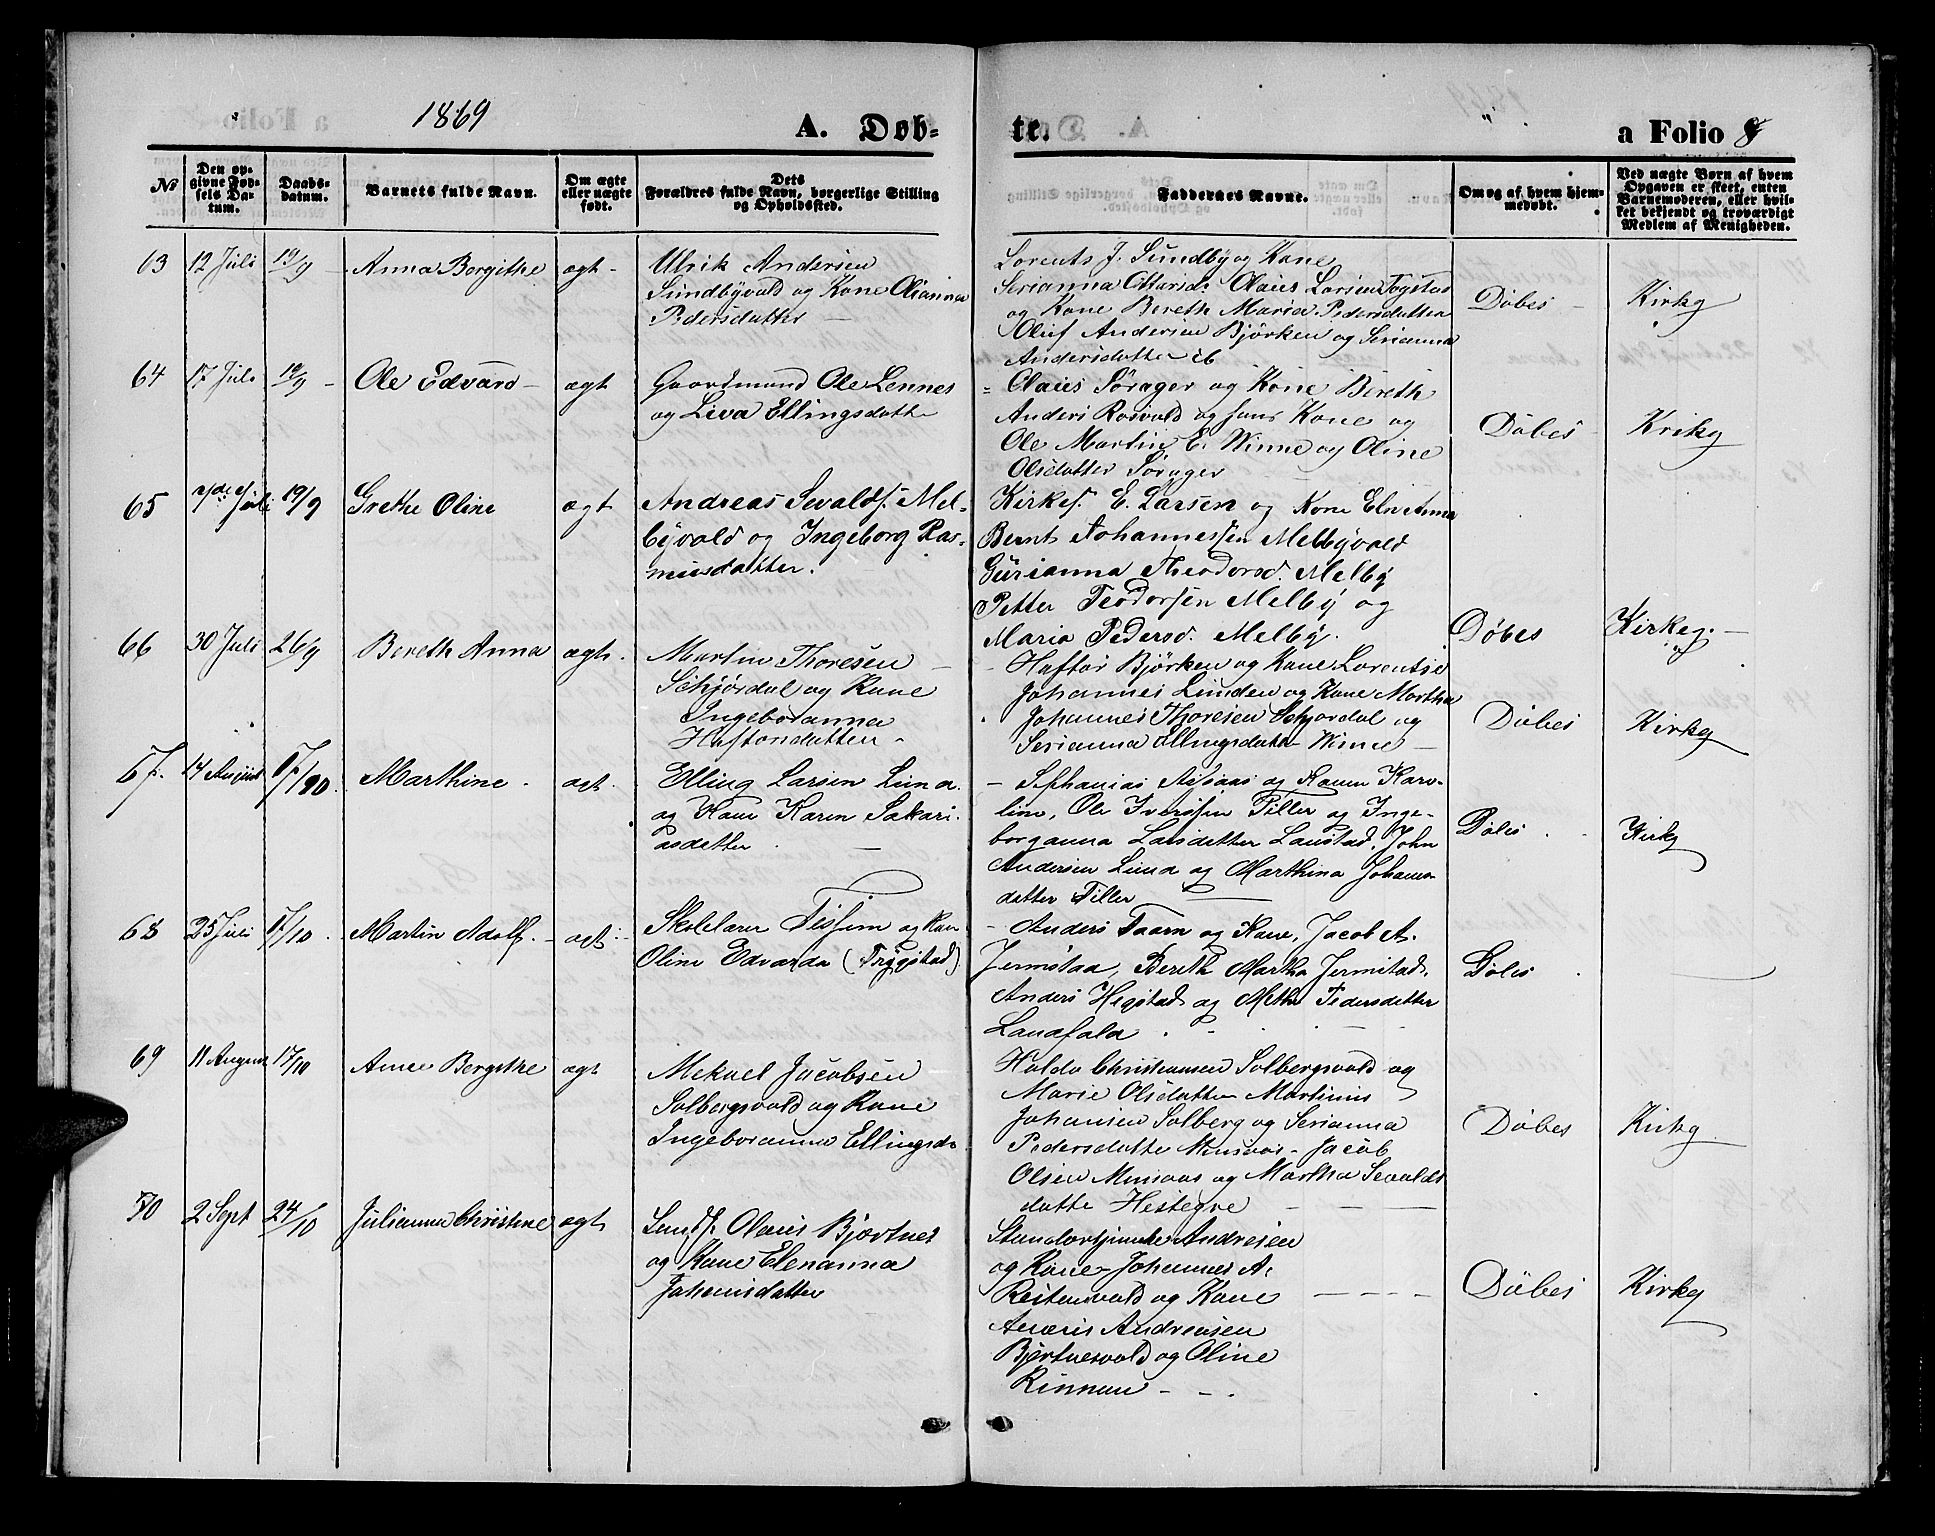 1869
A. Døb-
te.
a Folio 8
No
Den op-
givne Fød-
sels Da-
tum.
Daabs-
datum.
Barnets fulde Navn.
Om ægte
eller uægte
født.
Dets
Forældres fulde Navn, borgerlige Stilling
og Opholdssted.
Faddernes Navne.
Om og af hvem hjem-
medøbt.
Ved uægte Børn af hvem
Opgaven er skeet, enten
Barnemoderen, eller hvil-
ket bekjendt og troværdigt
Medlem af Menigheden.
63 12 Juli 19/9 Anna Borgithe ægt
Ulrik Andersen
Sundbyvald og Kone Olianna
Pedersdatter
Lorents J. Sundby og Kone
Serianna Marie Olaus Larsen
og Kone Bereth Maria Pedersdatter
Oluf Andersen Bjørken og Serianna
Andersdatter ib
Døbes Kirkg
64 17 Juli 19/9 Ole Edvard ægt
Gaardmand Ole Lennes
og Liva Ellingsdatter
Olaus Sørager og Kone Bereth
Anders Rosvold og hans Kone og
Ole Martin E. Winne og Oline
Olsdatter Sørager
Døbes Kirkg
65 Juli 19/9 Grethe Oline ægt
Andreas Sevalds. Mel-
byvald og Ingeborg Ras-
musdatter.
Kirkes. E. Larsen og Kone Elen Anna
Bernt Johannessen Melbyvald
Gurianna Theodorsd. Melby
Petter Teodorsen Melby og
Maria Pedersd. Melby.
Døbes Kirkeg.
66 30 Juli 26/9 Bereth Anna ægt.
Martin Thoresen
Schjørdal og Kone
Ingeboranna
Haftorsdatter
Haftor Bjørken og Kone Lorentse
Johannes Linden og Kone Martha
Johannes Thoresen Schjørdal og
Serianna Ellingsdatter Winne
Døbes Kirkg
67. 14 August 17/10 Marthine ægt.
Elling Larsen Leina
og Kone Karen Sakari-
asdatter
Sephanias og Konen Karo-
line, Ole Iversen Tiller og Inge-
borganna Larsdatter Laustad, John
Andersen Leina og Marthina Johans-
datter Tiller
Døbes Kirkg
68 25 Juli 17/10 Martin Adolf. ægt.
Skolelærer og Kone
Oline Edvarda (Trygstad)
Anders Faarn og Kone, Jacob A.
Jermstad, Bereth Martha Jermstad,
Anders Hegstad og Methe Pedersdatter
Landfald
Døbes
69 11 August 17/10 Anne Bergithe ægt
Mekael Jacobsen
Solbergsvald og Kone
Ingeboranna Ellingsd.
Haldo Christiansen Solbergsvald og
Marie Olsdatter Martinus
Johansen Solberg og Serianna
Pedersdatter Minsaas Jacob
Olsen Minsaas og Martha Sevalds
datte Hestegre
Døbes Kirkg
70 2 Sept 24/10 Julianna Christine ægt
Olaus Bjærtnes
og Kone Elenanna
Johansdatter
Andresen
og Kone Johannes A.
Reitenvald og Kone
Andreasen
Bjertnesvald og Oline
Rinnan
Døbes Kirkg